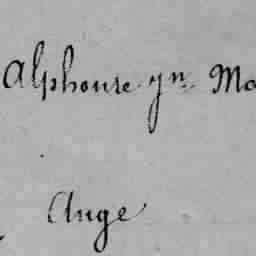 Alphonse yn Ma
Ange